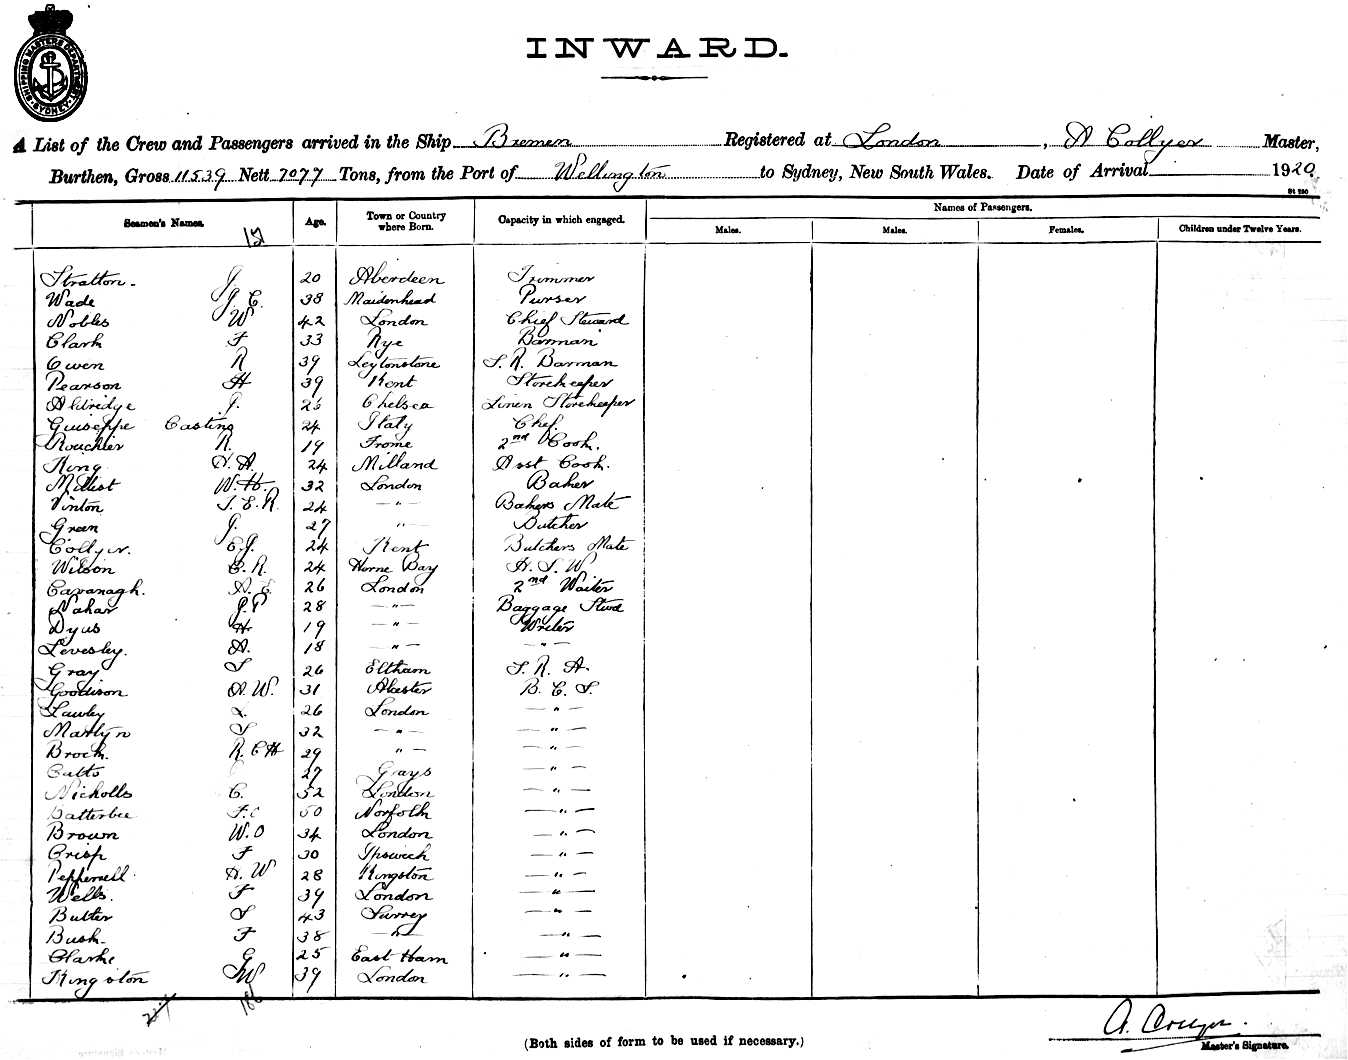 SHIPPING MASTERS DEPARTMENT SYDNEY
INWARD.
A List of the Crew and Passengers arrived in the Ship Bremen Registered at London, A Collyer Master,
Burthen, Gross 11539 Nett 7077 Tons, from the Port of Wellington to Sydney, New South Wales. Date of Arrival 1920
St 290
Seamen's Names. Age. Town or Country where Born. Capacity in which engaged. Names of Passengers.
Males. Males. Females. Children under Twelve Years.
151
Stratton J 20 Aberdeen Trimmer
Wade J. C. 38 Maidenhead Purser
Nobles W 42 London Chief Steward
Clark F 33 Rye Barman
Owen R 39 Leytonstone S. R. Barman
Pearson H 39 Kent Storekeeper
Aldridge J. 26 Chelsea Linen Storekeeper
Guiseppe Casting 24 Italy Chef.
Rouchier R. 19 Frome 2nd Cook.
King H. A. 24 Milland Asst Cook.
Millist W. H. 32 London Baker
Vinton T. E. R. 24 — " — Bakers Mate
Green J. 27 " — Butcher
Collyer. E. J. 24 Kent Butchers Mate
Wilson C. R. 24 Herne Bay H. S. W
Cavanagh. A. E. 26 London 2nd Waiter
Nahar J. P 28 — " — Baggage Stwd
Dyus H 19 — " — Writer
Levesley. A. 18 — " — — " —
Gray S 26 Eltham S. R. A.
Goodison A. W. 31 Alcester B. C. S.
Lawley L. 26 London — " —
Martyn S 32 — " — — " —
Brock. R. C H 29 " — — " —
Cutts 27 Grays — " —
Nicholls C. 52 London — " —
Batterbee F. C 50 Norfolk — " —
Brown W. O 34 London — " —
Crisp F 30 Ipswich — " —
Peppernell A. W 28 Kingston — " —
Wells. F 39 London — " —
Butler S 43 Surrey — " —
Bush F 38 — " — — " —
Clarke G 25 East Ham — " —
Kingston J W 39 London — " —
186
(Both sides of form to be used if necessary.)
A. Collyer.
Master's Signature.